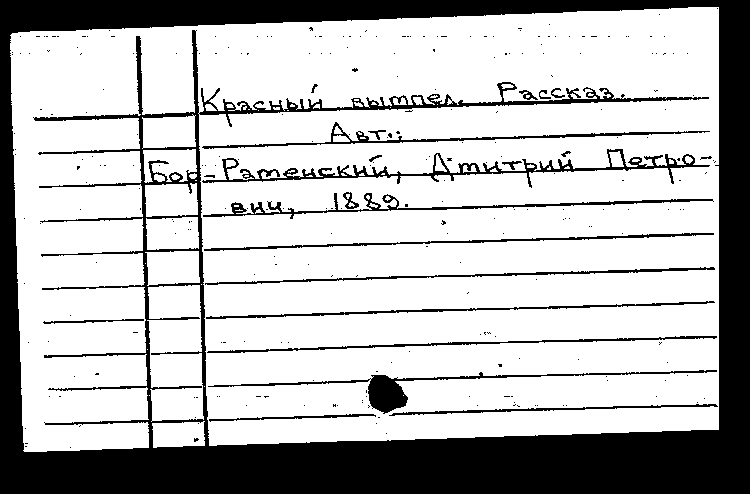 Красный вымпел. Рассказ.
Авт.:
Бор-Раменский, Дмитрий Петро-
вич, 1889.